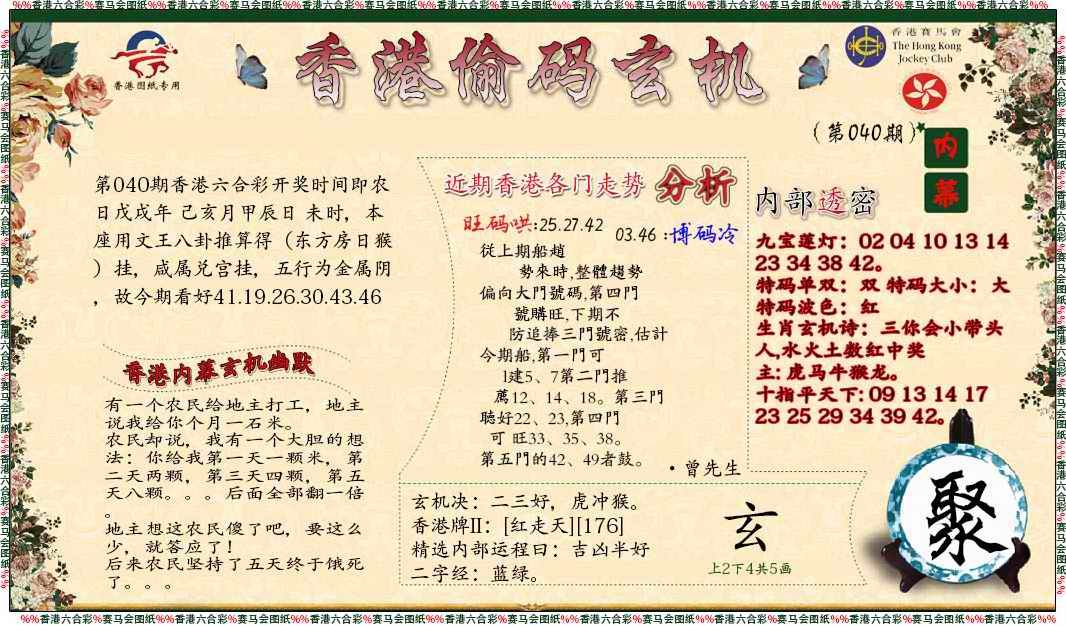 %%香港六合彩%赛马会图纸%%香港六合彩%赛马会图纸%%香港六合彩%赛马会图纸%%香港六合彩%赛马会图纸%%香港六合彩%赛马会图纸%%香港六合彩%赛马会图纸%%香港六合彩%%
香港图纸专用
香港偷码玄机
香港賽馬會
The Hong Kong
Jockey Club
(第040期)
内
幕
第040期香港六合彩开奖时间即农
日戊戌年 己亥月甲辰日 未时，本
座用文王八卦推算得（东方房日猴
）挂，咸属兑宫挂，五行为金属阴
，故今期看好41.19.26.30.43.46
香港内幕玄机幽默
有一个农民给地主打工，地主
说我给你个月一石米。
农民却说，我有一个大胆的想
法：你给我第一天一颗米，第
二天两颗，第三天四颗，第五
天八颗。。。后面全部翻一倍
。
地主想这农民傻了吧，要这么
少，就答应了！
后来农民坚持了五天终于饿死
了。。。
近期香港各门走势 分析
旺码哄:25.27.42
03.46 :博码冷
從上期船趙
勢來時,整體趨勢
偏向大門號碼,第四門
號購旺,下期不
防追捧三門號密,估計
今期船,第一門可
l建5、7第二門推
薦12、14、18。第三門
聰好22、23,第四門
可 旺33、35、38。
第五門的42、49者鼓。
·曾先生
内部透密
九宝莲灯：02 04 10 13 14
23 34 38 42。
特码单双：双 特码大小：大
特码波色：红
生肖玄机诗：三你会小带头
人,水火土数红中奖
主: 虎马牛猴龙。
十指平天下: 09 13 14 17
23 25 29 34 39 42。
玄机决：二三好，虎冲猴。
香港牌II：[红走天][176]
精选内部运程曰：吉凶半好
二字经：蓝绿。
玄
上2下4共5画
聚
%%香港六合彩%赛马会图纸%%香港六合彩%赛马会图纸%%香港六合彩%赛马会图纸%%香港六合彩%赛马会图纸%%香港六合彩%赛马会图纸%%香港六合彩%赛马会图纸%%香港六合彩%%